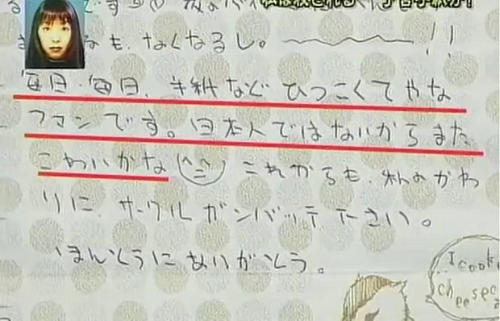 なも、なくなるし。
毎日、毎日、手紙など ひつこくてやな
ファンです。日本人ではないからまた
こわいかな (^=^) これからも、私のかわ
りに、サークル ガンバッテ下さい。
ほんとうにありがとう。
I cook
cheesec